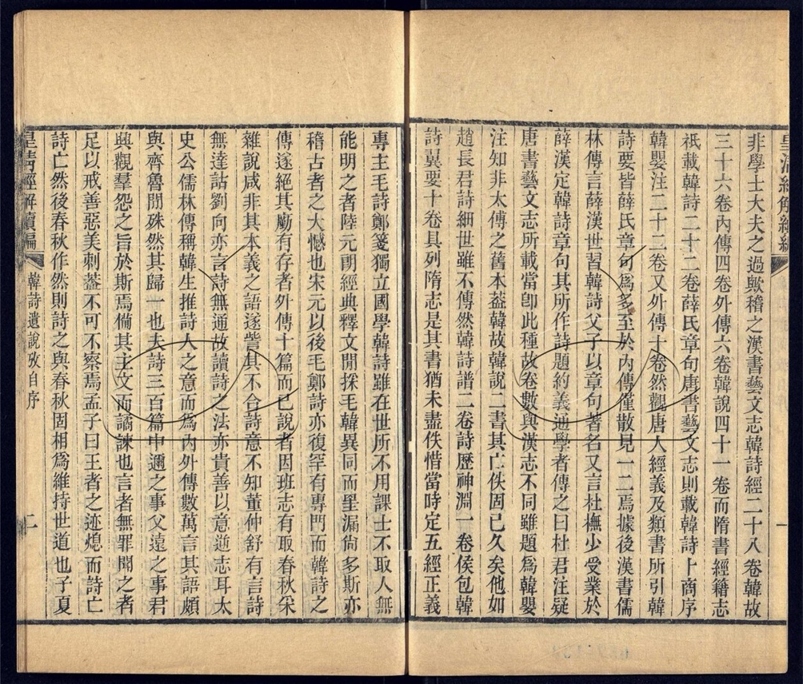 非學士大夫之過歟稽之漢書藝文志韓詩經二十八卷韓故
三十六卷內傳四卷外傳六卷韓說四十一卷而隋書經籍志
祇載韓詩二十二卷薛氏章句唐書藝文志則載韓詩卜商序
韓嬰注二十二卷又外傳十卷然觀唐人經義及類書所引韓
詩要皆薛氏章句為多至於內傳僅散見一二焉據後漢書儒
林傳言薛漢世習韓詩父子以章句著名又言杜撫少受業於
薛漢定韓詩章句其所作詩題約義通學者傳之曰杜君注疑
唐書藝文志所載當卽此種故卷數與漢志不同雖題為韓嬰
注知非太傅之舊本蓋韓故韓說二書其亡佚固已久矣他如
趙長君詩細世雖不傳然韓詩譜二卷詩歷神淵一卷侯包韓
詩翼要十卷具列隋志是其書猶未盡佚惜當時定五經正義
專主毛詩鄭箋獨立國學韓詩雖在世所不用課士不取人無
能明之者陸元朗經典釋文閒採毛韓異同而罣漏尙多斯亦
稽古者之大憾也宋元以後毛鄭詩亦復罕有專門而韓詩之
傳遂絕其廟有存者外傳十篇而已說者因班志有取春秋采
雜說咸非其本義之語遂訾其不合詩意不知董仲舒有言詩
無達詁劉向亦言詩無通故讀詩之法亦貴善以意逆志耳太
史公儒林傳稱韓生推詩人之意而為內外傳數萬言其語頗
與齊魯閒殊然其歸一也夫詩三百篇中邇之事父遠之事君
興觀羣怨之旨於斯焉備其主文而譎諫也言者無罪聞之者
足以戒善惡美刺蓋不可不察焉孟子曰王者之迹熄而詩亡
詩亡然後春秋作然則詩之與春秋固相為維持世道也子夏
皇清經解續編
韓詩遺說攷自序
二